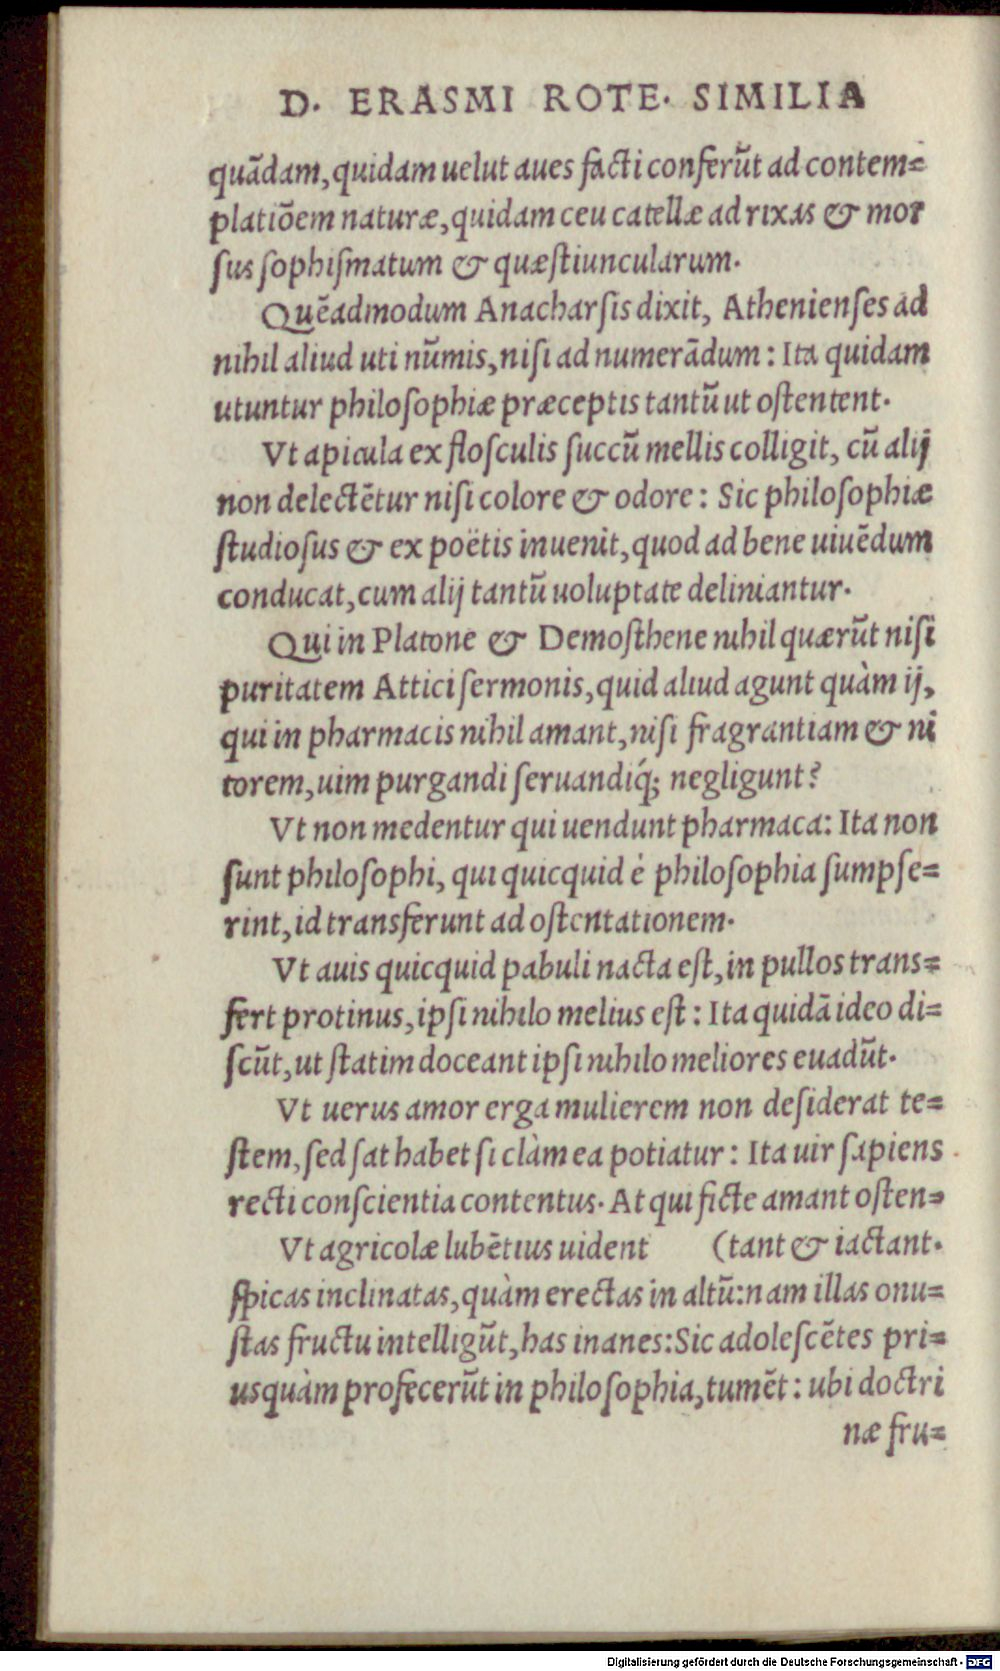 D. ERASMI ROTE. SIMILIA
quãdam, quidam uelut aues facti conferũt ad contem=
platiõem naturæ, quidam ceu catellæ ad rixas & mor
sus sophismatum & quæstiuncularum.
Quẽadmodum Anacharsis dixit, Athenienses ad
nihil aliud uti nũmis, nisi ad numerãdum: Ita quidam
utuntur philosophiæ præceptis tantũ ut ostentent.
Vt apicula ex flosculis succũ mellis colligit, cũ alij
non delectẽtur nisi colore & odore: Sic philosophiæ
studiosus & ex poëtis inuenit, quod ad bene uiuẽdum
conducat, cum alij tantũ uoluptate deliniantur.
Qui in Platone & Demosthene nihil quærũt nisi
puritatem Attici sermonis, quid aliud agunt quàm ij,
qui in pharmacis nihil amant, nisi fragrantiam & ni
torem, uim purgandi seruandiq́; negligunt?
Vt non medentur qui uendunt pharmaca: Ita non
sunt philosophi, qui quicquid è philosophia sumpse=
rint, id transferunt ad ostentationem.
Vt auis quicquid pabuli nacta est, in pullos trans=
fert protinus, ipsi nihilo melius est: Ita quidã ideo di=
scũt, ut statim doceant ipsi nihilo meliores euadũt.
Vt uerus amor erga mulierem non desiderat te=
stem, sed sat habet si clàm ea potiatur: Ita uir sapiens
recti conscientia contentus. At qui ficte amant osten=
Vt agricolæ lubẽtius uident (tant & iactant.
spicas inclinatas, quàm erectas in altũ: nam illas onu=
stas fructu intelligũt, has inanes: Sic adolescẽtes pri=
usquàm profecerũt in philosophia, tumẽt: ubi doctri
næ fru=
Digitalisierung gefördert durch die Deutsche Forschungsgemeinschaft - DFG